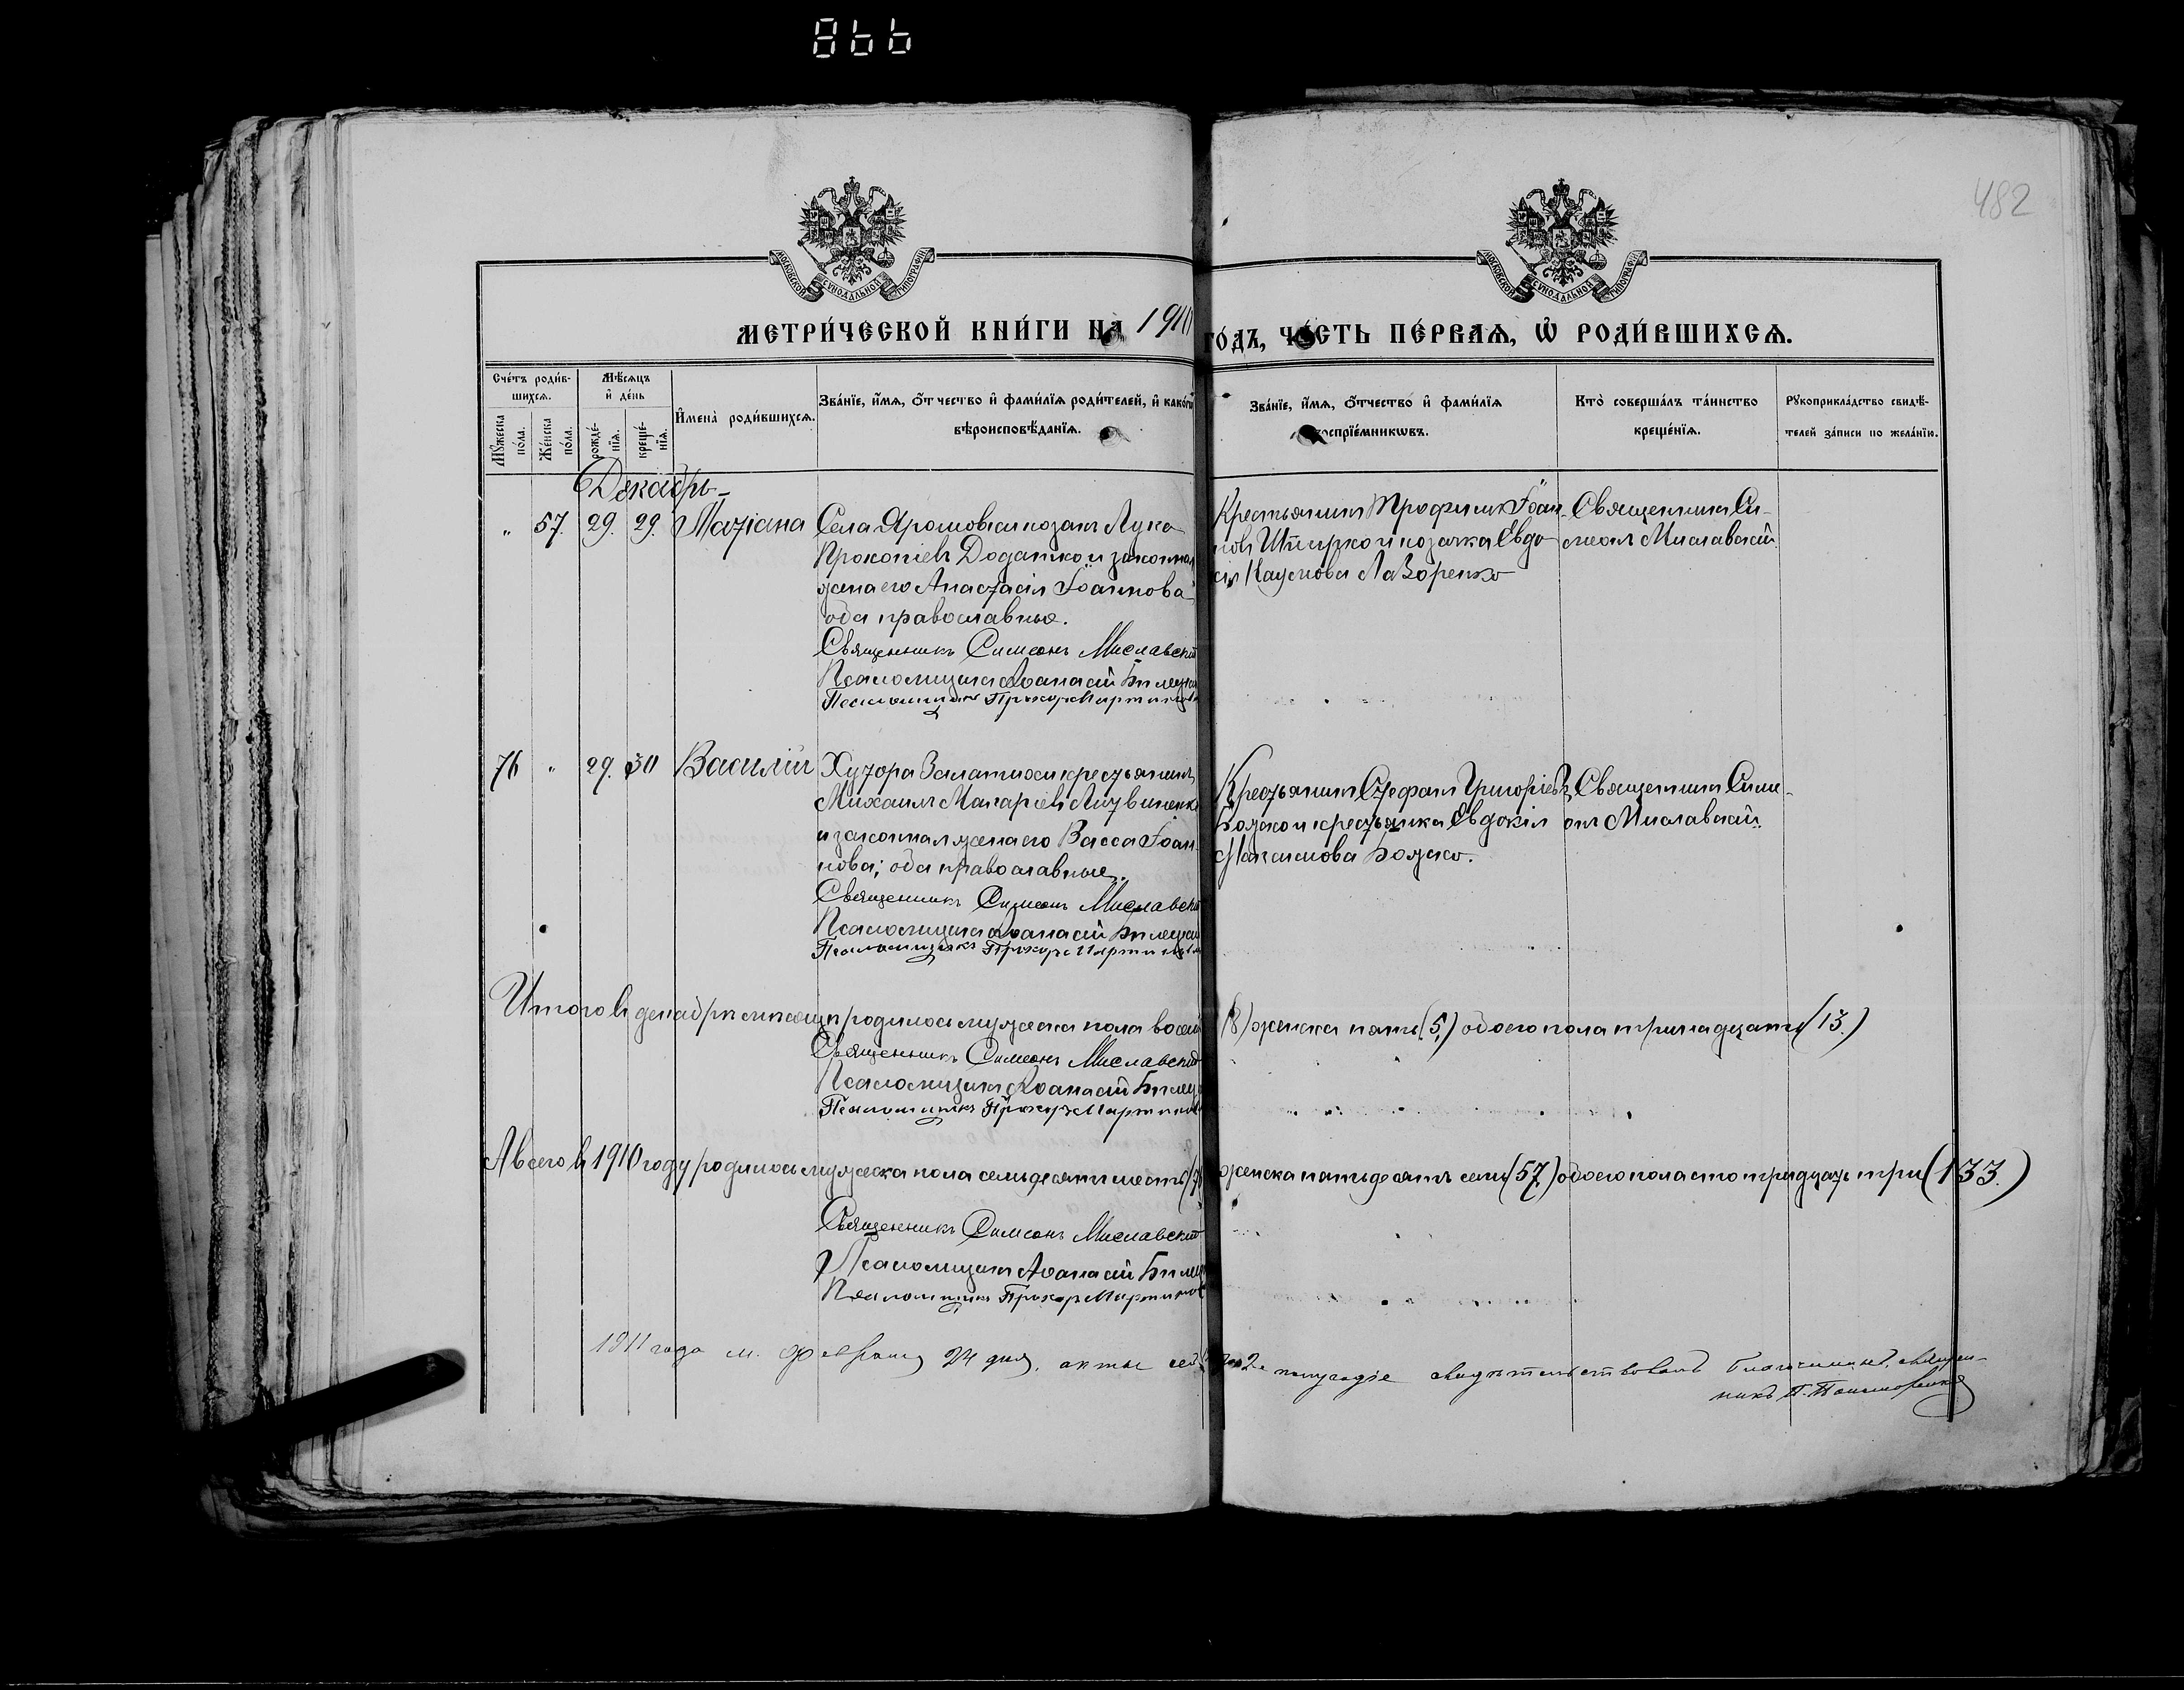 866
482
МОСКОВСКОЙ СѴНОДАЛЬНОЙ ТИПОГРАФІИ
МОСКОВСКОЙ СѴНОДАЛЬНОЙ ТИПОГРАФІИ
МЕТРИ́ЧЕСКОЙ КНИ́ГИ НА 1910 ГО́ДЪ, ЧА́СТЬ ПЕ́РВАѦ, Ѡ҆ РОДИ́ВШИХСѦ.
Сче́тъ роди́в-
шихсѧ.
Мꙋ́жеска по́ла.
Же́нска по́ла.
Мѣ́сѧцъ
и҆ де́нь
рожде́-
нїѧ.
креще́-
нїѧ.
И҆мена̀ роди́вшихсѧ.
Зва́нїе, и҆́мѧ, ѻ҆́тчество и҆ фами́лїѧ роди́телей, и҆ како́гѡ
вѣроисповѣ́данїѧ.
Зва́нїе, и҆́мѧ, ѻ҆́тчество и҆ фами́лїѧ
воспрїе́мникѡвъ.
Кто̀ соверша́лъ та́инство
креще́нїѧ.
Рꙋкоприкла́дство свидѣ́-
телей за́писи по жела́нїю.
Декабрь
" 57. 29. 29. Татіана
Села Ярошовки козакъ Лука
Прокопіевъ Додатко и законная
жена его Анастасія Іоаннова
оба православные.
Священникъ Симеонъ Миславскій
Псаломщикъ Аѳанасій
Псаломщикъ Прохоръ
Крестьянинъ Трофимъ Іоан-
новъ и козачка Евдо-
кія Наумова Лазоренко
Священникъ Си-
меонъ Миславскій
76 " 29. 30 Василій
Хутора крестьянинъ
Михаилъ Макаріевъ Литвиненко
и законная жена его Васса Іоан-
нова; оба православные.
Священникъ Симеонъ Миславскій
Псаломщикъ Аѳанасій
Псаломщикъ Прохоръ
Крестьянинъ Стефанъ Григоріевъ
Божко и крестьянка Евдокія
Максимова Божко.
Священникъ Симе-
онъ Миславскій
Итого въ декабрѣ мѣсяцѣ родилось мужеска пола восемь (8) женска пять (5,) обоего пола тринадцать (13.)
Священникъ Симеонъ Миславскій
Псаломщикъ Аѳанасій
Псаломщикъ Прохоръ
А всего въ 1910 году родилось мужеска пола семьдесятъ шесть женска пятьдесятъ семь (57.) обоего пола сто тридцать три (133.)
Священникъ Симеонъ Миславскій
Псаломщикъ Аѳанасій
Псаломщикъ Прохоръ
1911 года м. Февраля 24 дня, акты сей за 2е полугодіе свидѣтельствовалъ Благочинный, священ-
никъ